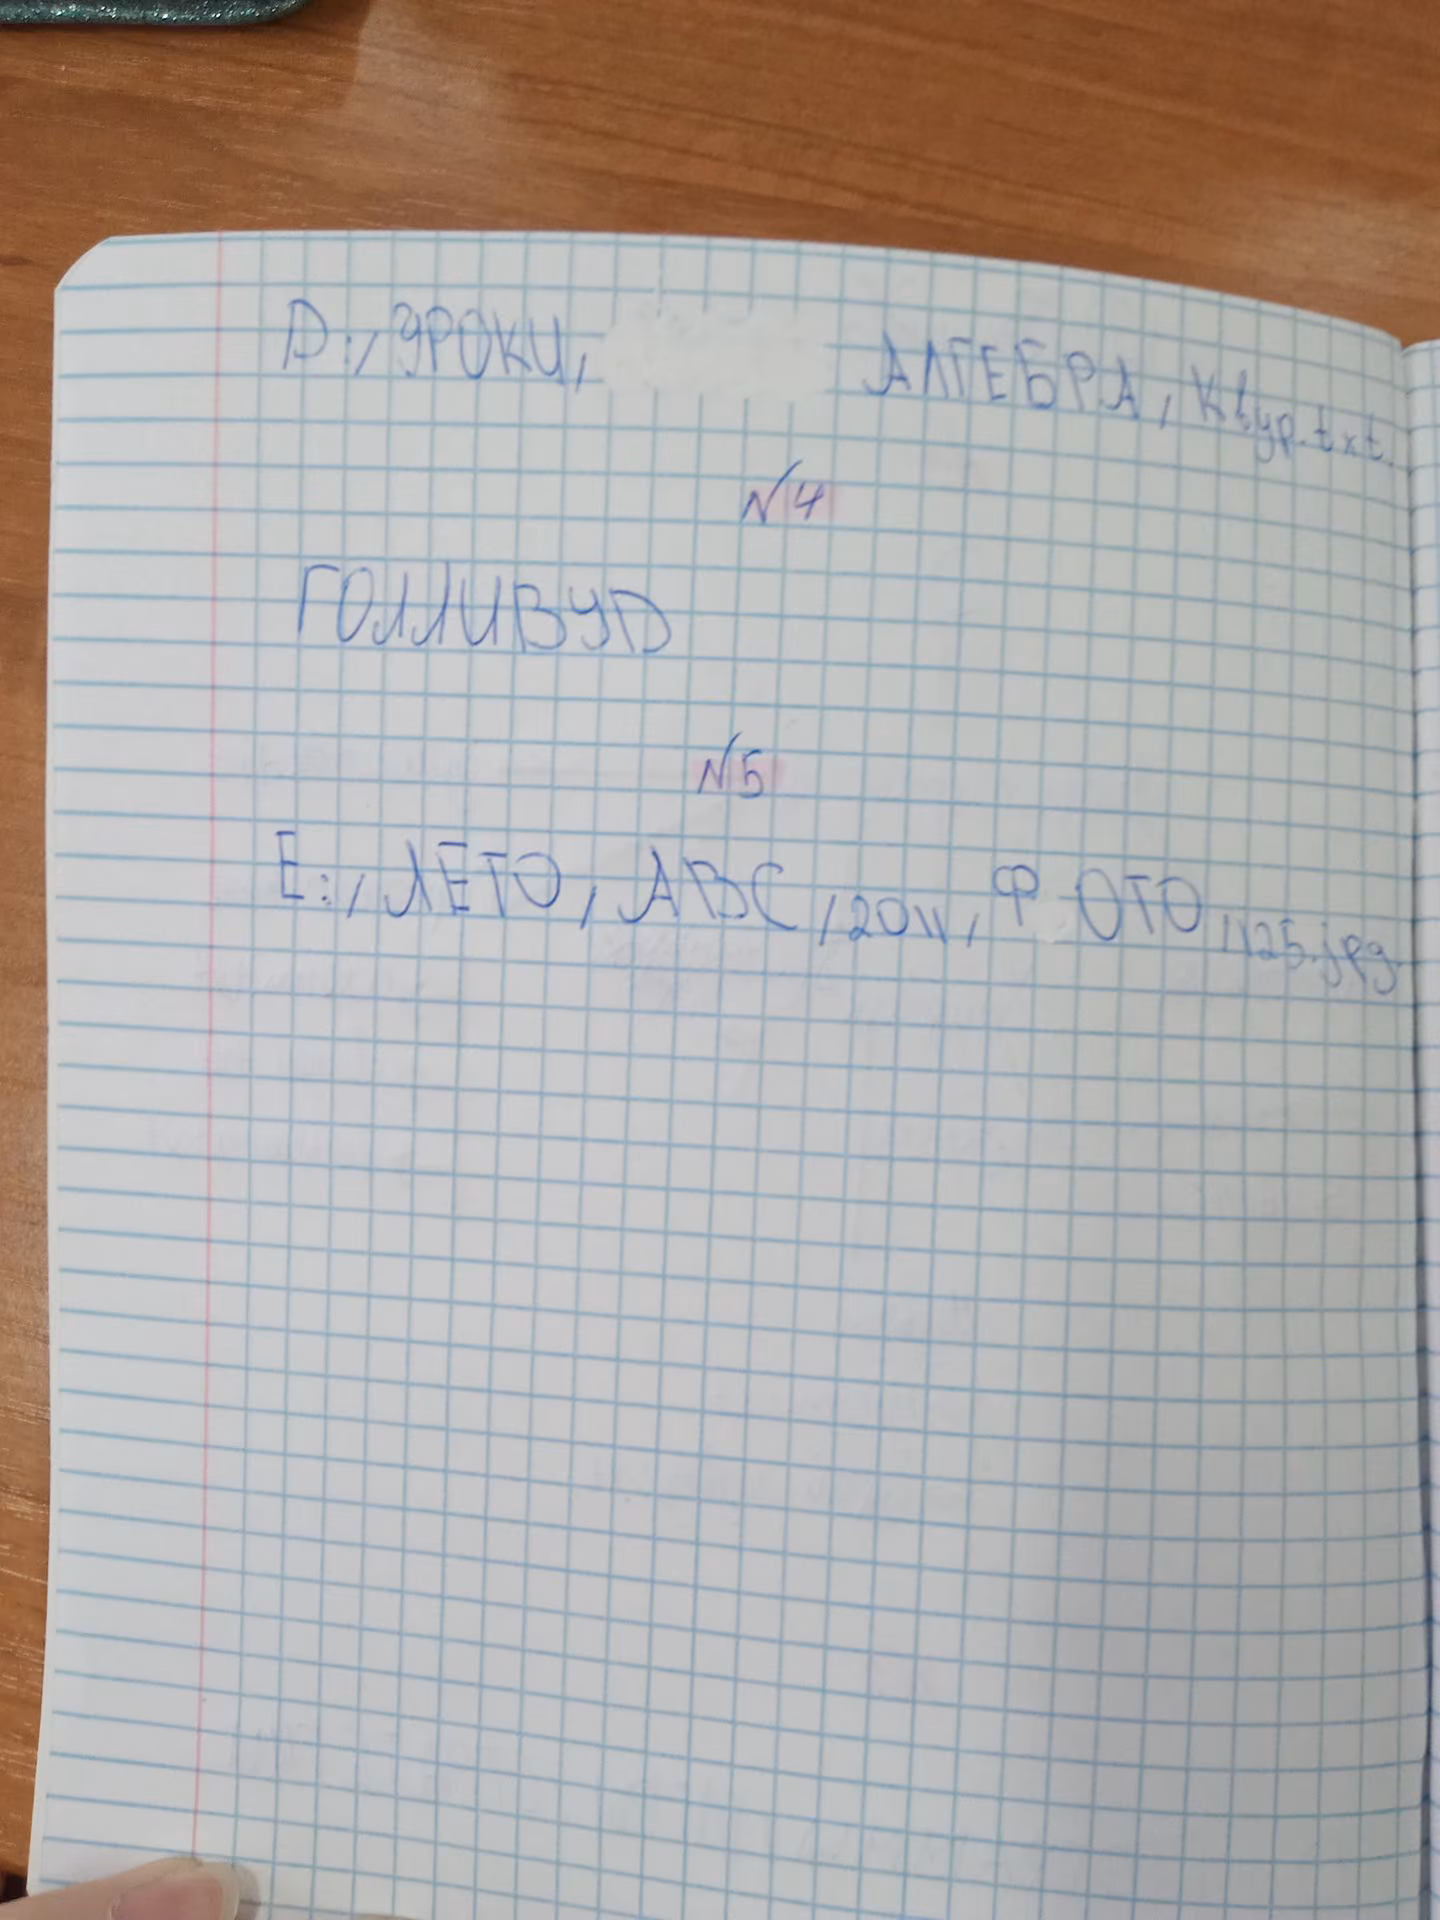 D:, УРОКИ, АЛГЕБРА, Квур.txt.
№4
ГОЛЛИВУD
№5
E:, ЛЕТО, ABC, 2011, ФОТО, 1125.jpg.